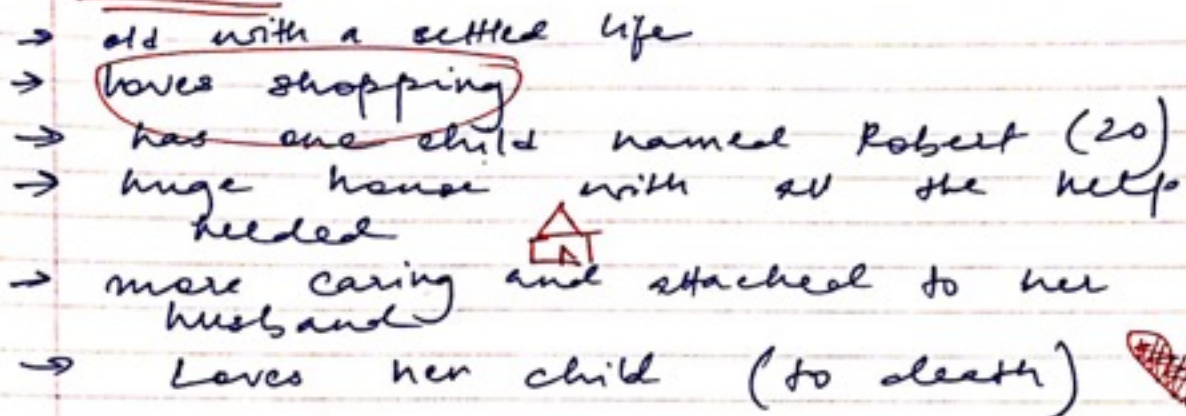 → old with a settled life
→ Loves shopping
→ has one child named Robert (20)
→ huge house with all the help
needed
→ more caring and attached to her
husband
→ Loves her child (to death)